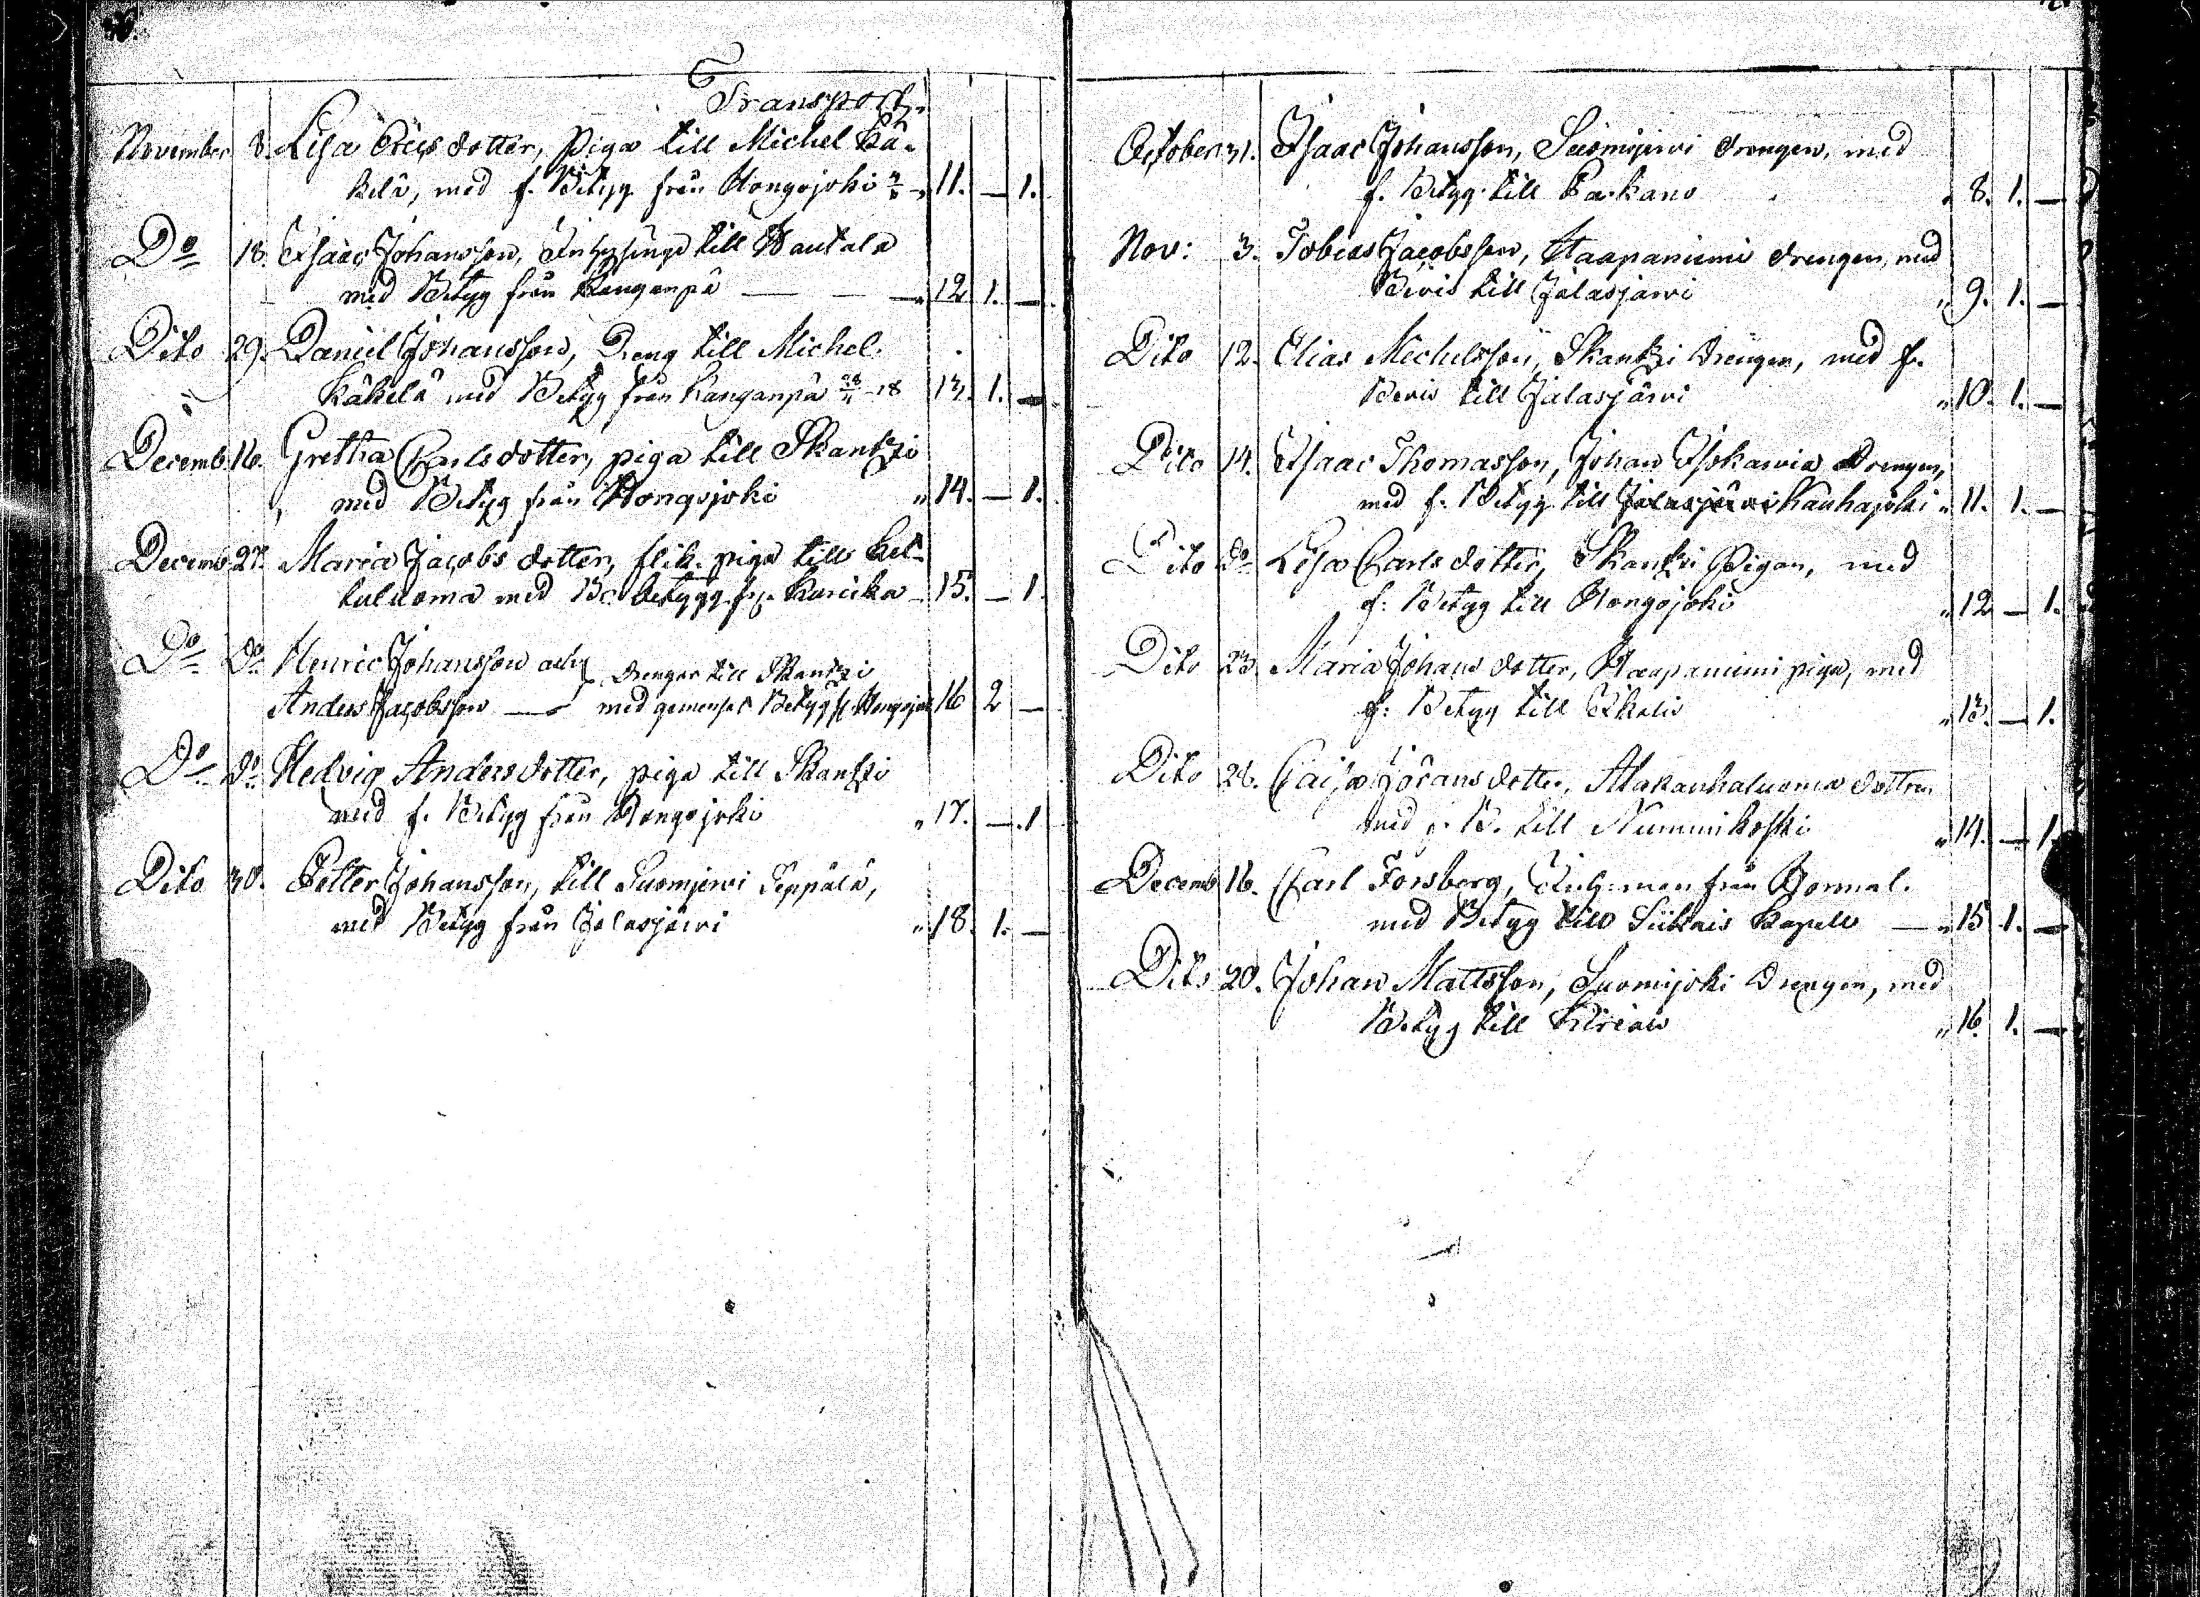 Transport.
November 8. Lisa Erics dotter, piga till Michel Kä-
kelä, med f. Betyg från Hongojoki 11. — 1.
Do 18. Isaac Johansson, till Hautala
med Betyg från Kanganpä — — 12 1. —
Dito 29. Daniel Johansson, Dreng till Michel
Käkelä med Betyg från Kanganpä 13. 1. —
Decemb. 16. Gretha Carls dotter, piga till Skantzi
med Betyg från Hongojoki " 14. — 1.
Decemb. 27. Maria Jacobs dotter, flik. piga till Kel-
tuluoma med betygg fr. Kuricka 15. — 1.
Do Do Henric Johansson och
Anders Jacobsson — drengar till Skantzi
med gemensat Betyg fr. Hongojok 16 2 —
Do Do Hedvig Anders dotter, piga till Skantzi
med f. Betyg från Hongojoki " 17. — 1
Dito 30. Petter Johansson, till Suomijervi Seppälä,
med Betyg från Jalasjärvi " 18. 1. —
October 31. Isaac Johansson, Suomijervi drengen, med
f. Betyg till Parkano " 8. 1. —
Nov: 3. Tobias Jacobsson, Haapaniemi drengen, med
Bevis till Jalasjärvi " 9. 1. —
Dito 12. Elias Michelsson, Skantzi drengen, med f.
Bevis till Jalasjärvi " 10. 1. —
Dito 14. Isaac Thomasson, Johan Iskarvia drengen,
med f. Betyg till Jalasjärvi Kauhajoki " 11. 1. —
Dito Do Lisa Carls dotter, Skantzi Pigan, med
f. Betyg till Hongojoki " 12 — 1.
Dito 23. Maria Johans dotter, Haapaniemi piga, med
f. Betyg till Ikalis " 13. — 1.
Dito 26. Caisa Görans dotter, Alakauhaluoma dottren
med f. B. till Nummikoski " 14. — 1.
Decemb. 16. Carl Forsberg, Inh: man från Hormal.
med Betyg till Siikais Kapell — " 15 1. —
Dito 20. Johan Mattsson, Suomijoki drengen, med
Betyg till " 16. 1. —